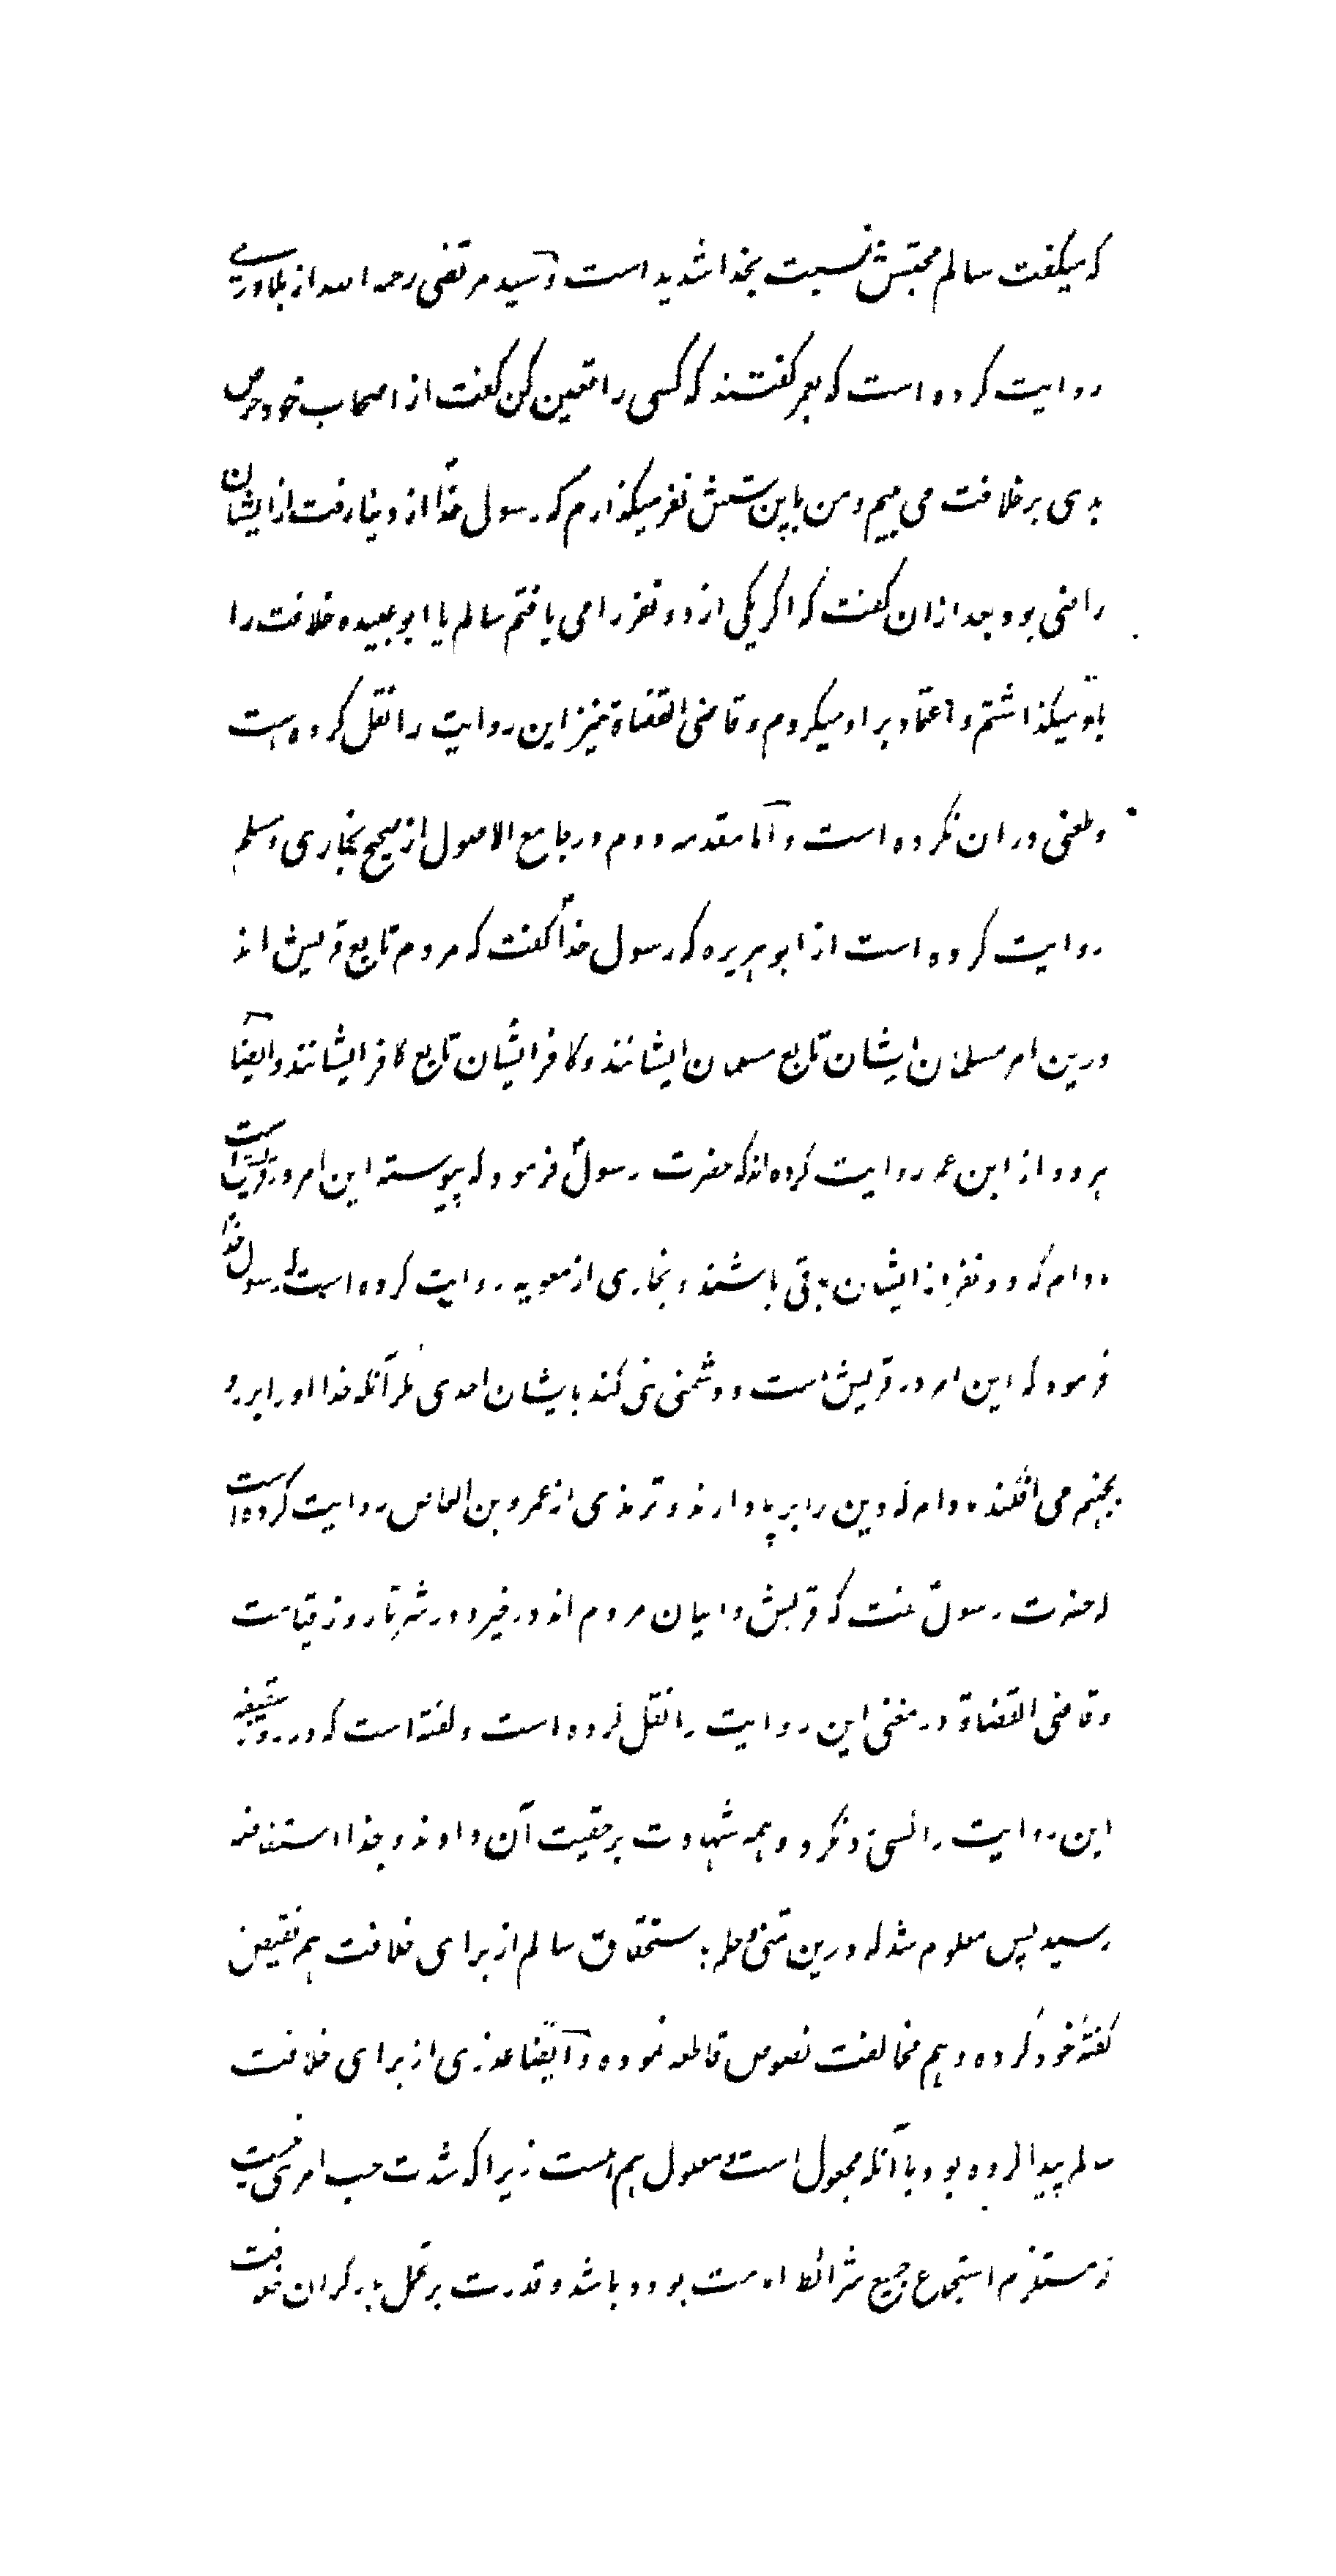 که میگفت سالم محبتش نسبت بخدا شدید است و سید مرتضی رحمه الله از بلاذری
روایت کرده است که بعمر گفتند که کسی را تعیین کن گفت از اصحاب خود حرص
بدی بر خلافت می بینم و من باین شش نفر میگذارم که رسول خدا از دنیا رفت از ایشان
راضی بود بعد ازان گفت که اگر یکی از دو نفر را می یافتم سالم یا ابو عبیده خلافت را
باو میگذاشتم و اعتماد بر او میکردم و قاضی القضاة نیز این روایت را نقل کرده است
و طعنی دران نکرده است و اما مقدمه دوم در جامع الاصول از صحیح بخاری و مسلم
روایت کرده است از ابو هریره که رسول خدا گفت که مردم تابع قریش اند
درین امر مسلمان ایشان تابع مسلمان ایشانند و کافر ایشان تابع کافر ایشانند و ایضا
هر دو از ابن عمر روایت کرده اند که حضرت رسول فرمود که پیوسته این امر در قریش است
مادام که دو نفر از ایشان باقی باشند و بخاری از معویه روایت کرده است که رسول خدا
فرمود که این امر در قریش است و دشمنی نمی کند با یشان احدی مگر آنکه خدا او را بر رو
بجهنم می افکند مادام که دین را بر پا دارند و ترمذی از عمرو بن العاص روایت کرده است
که حضرت رسول گفت که قریش والیان مردم اند در خیر و در شر تا روز قیامت
و قاضی القضاة در مغنی این روایت را نقل کرده است و گفته است که در روز سقیفه
این روایت را کسی رد نکرد و همه شهادت بر حقیت آن دادند و بحد استفاضه
رسید پس معلوم شد که درین تمنی و حکم باستحقاق سالم از برای خلافت هم نقیض
گفته خود کرده و هم مخالفت نصوص قاطعه نموده و ایضا عذری از برای خلافت
سالم پیدا کرده بود با آنکه مجعول است و معلول هم هست زیرا که شدت حب امری نیست
که مستلزم استجماع جمیع شرائط امامت بوده باشد و قدرت بر تحمل بار گران خلافت